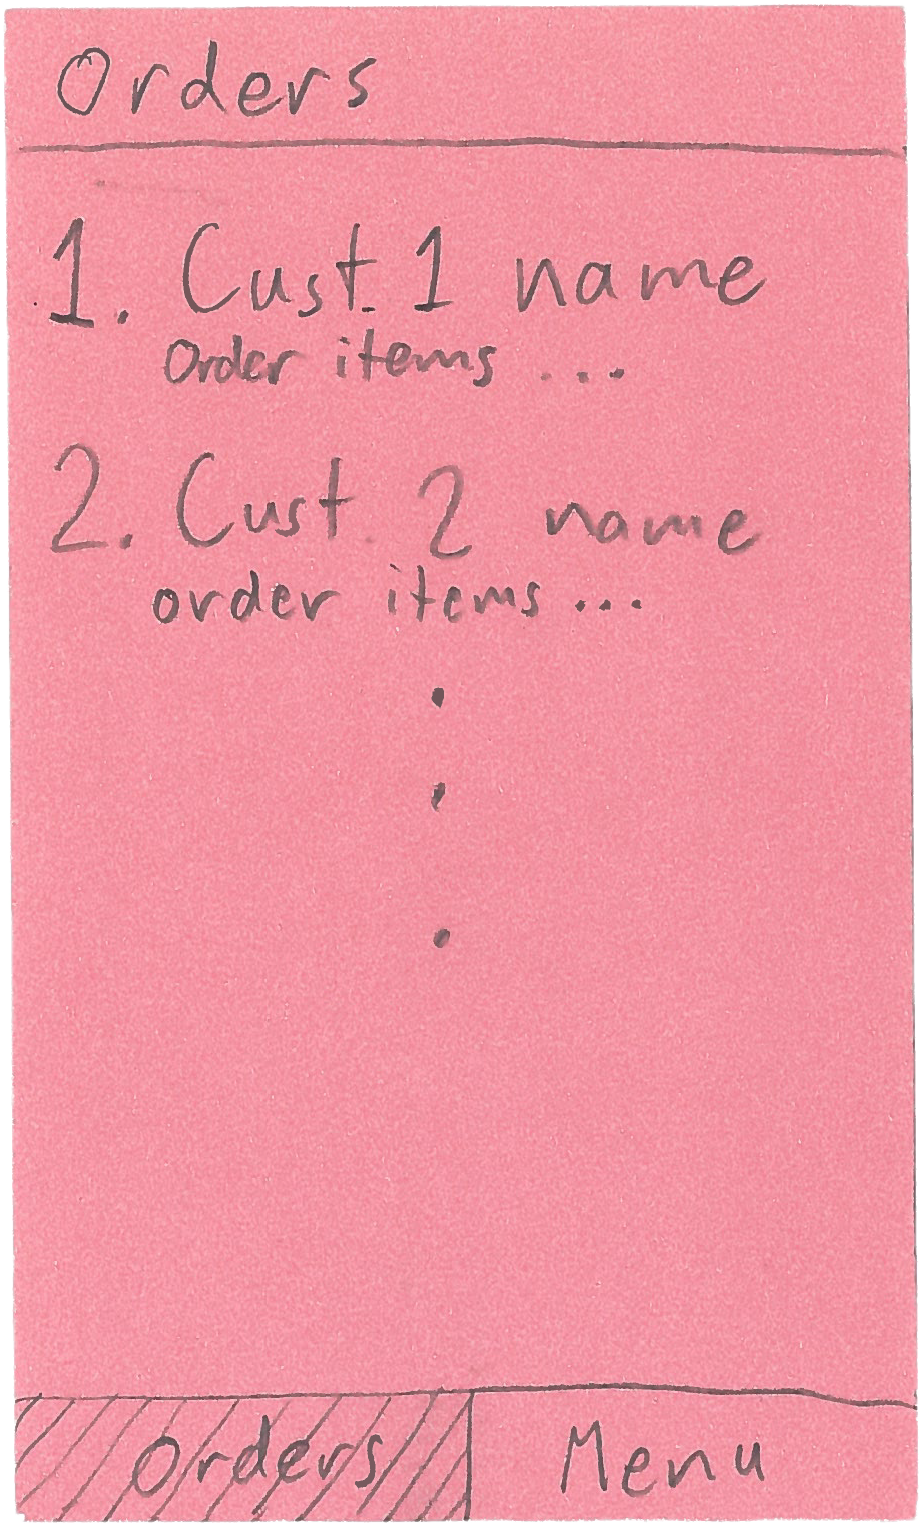 Orders
1. Cust. 1 name
Order items ...
2. Cust. 2 name
order items ...
.
.
.
Orders Menu